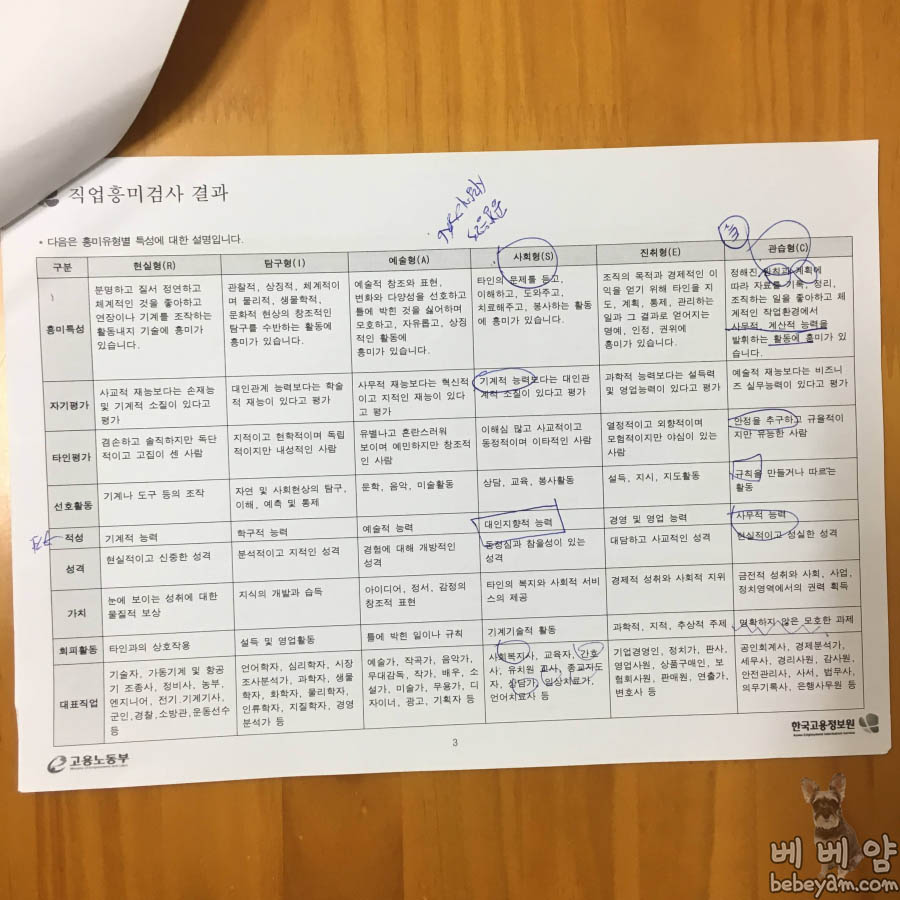 직업흥미검사 결과
• 다음은 흥미유형별 특성에 대한 설명입니다.
구분 현실형(R) 탐구형(I) 예술형(A) 사회형(S) 진취형(E) 관습형(C)
흥미특성
분명하고 질서 정연하고
체계적인 것을 좋아하고
연장이나 기계를 조작하는
활동내지 기술에 흥미가
있습니다.
관찰적, 상징적, 체계적이
며 물리적, 생물학적,
문화적 현상의 창조적인
탐구를 수반하는 활동에
흥미가 있습니다.
예술적 창조와 표현,
변화와 다양성을 선호하고
틀에 박힌 것을 싫어하며
모호하고, 자유롭고, 상징
적인 활동에
흥미가 있습니다.
타인의 문제를 듣고,
이해하고, 도와주고,
치료해주고, 봉사하는 활동
에 흥미가 있습니다.
조직의 목적과 경제적인 이
익을 얻기 위해 타인을 지
도, 계획, 통제, 관리하는
일과 그 결과로 얻어지는
명예, 인정, 권위에
흥미가 있습니다.
정해진 원칙과 계획에
따라 자료를 기록, 정리,
조직하는 일을 좋아하고 체
계적인 작업환경에서
사무적, 계산적 능력을
발휘하는 활동에 흥미가 있
습니다.
자기평가
사교적 재능보다는 손재능
및 기계적 소질이 있다고
평가
대인관계 능력보다는 학술
적 재능이 있다고 평가
사무적 재능보다는 혁신적
이고 지적인 재능이 있다
고 평가
기계적 능력보다는 대인관
계적 소질이 있다고 평가
과학적 능력보다는 설득력
및 영업능력이 있다고 평가
예술적 재능보다는 비즈니
즈 실무능력이 있다고 평가
타인평가
겸손하고 솔직하지만 독단
적이고 고집이 센 사람
지적이고 현학적이며 독립
적이지만 내성적인 사람
유별나고 혼란스러워
보이며 예민하지만 창조적
인 사람
이해심 많고 사교적이고
동정적이며 이타적인 사람
열정적이고 외향적이며
모험적이지만 야심이 있는
사람
안정을 추구하고 규율적이
지만 유능한 사람
선호활동
기계나 도구 등의 조작
자연 및 사회현상의 탐구,
이해, 예측 및 통제
문학, 음악, 미술활동
상담, 교육, 봉사활동
설득, 지시, 지도활동
규칙을 만들거나 따르는
활동
적성
기계적 능력
학구적 능력
예술적 능력
대인지향적 능력
경영 및 영업 능력
사무적 능력
성격
현실적이고 신중한 성격
분석적이고 지적인 성격
경험에 대해 개방적인
성격
동정심과 참을성이 있는
성격
대담하고 사교적인 성격
현실적이고 성실한 성격
가치
눈에 보이는 성취에 대한
물질적 보상
지식의 개발과 습득
아이디어, 정서, 감정의
창조적 표현
타인의 복지와 사회적 서비
스의 제공
경제적 성취와 사회적 지위
금전적 성취와 사회, 사업,
정치영역에서의 권력 획득
회피활동
타인과의 상호작용
설득 및 영업활동
틀에 박힌 일이나 규칙
기계기술적 활동
과학적, 지적, 추상적 주제
명확하지 않은 모호한 과제
대표직업
기술자, 가동기계 및 항공
기 조종사, 정비사, 농부,
엔지니어, 전기.기계기사,
군인,경찰,소방관,운동선수
등
언어학자, 심리학자, 시장
조사분석가, 과학자, 생물
학자, 화학자, 물리학자,
인류학자, 지질학자, 경영
분석가 등
예술가, 작곡가, 음악가,
무대감독, 작가, 배우, 소
설가, 미술가, 무용가, 디
자이너, 광고, 기획자 등
사회복지사, 교육자, 간호
사, 유치원 교사, 종교지도
자, 상담가, 임상치료가,
언어치료사 등
기업경영인, 정치가, 판사,
영업사원, 상품구매인, 보
험회사원, 판매원, 연출가,
변호사 등
공인회계사, 경제분석가,
세무사, 경리사원, 감사원,
안전관리사, 사서, 법무사,
의무기록사, 은행사무원 등
3
고용노동부
한국고용정보원
베베얌
bebeyam.com